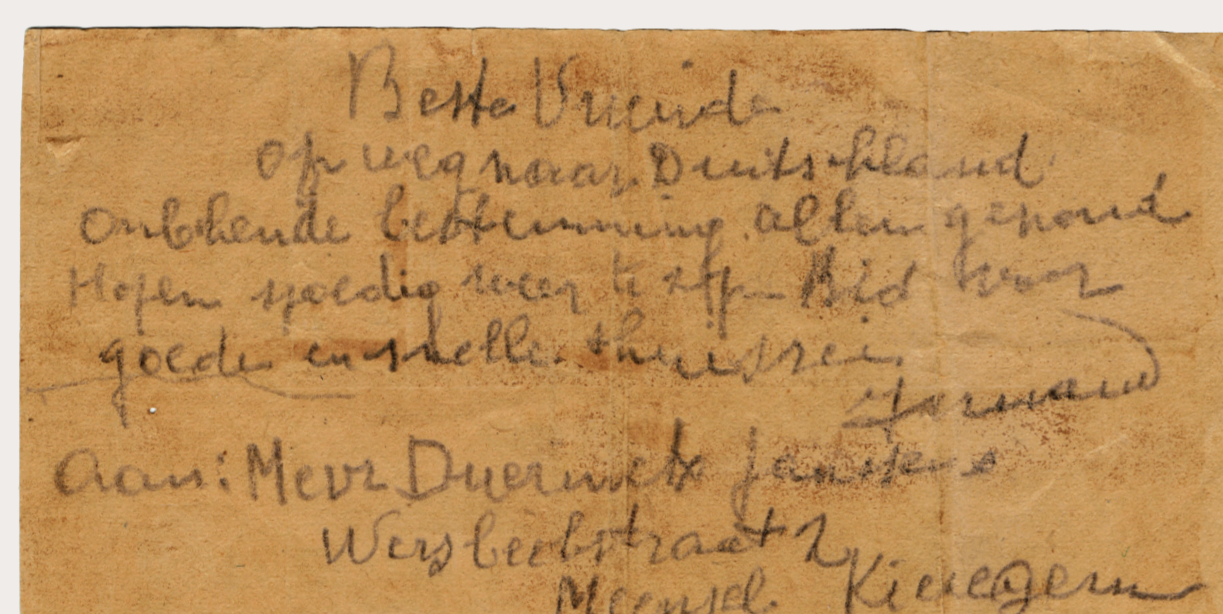 Beste Vriende
op weg naar Duitschland
onbekende bestemming. allen gezond
Hopen spoedig weer te zijn Bid voor
goede en snelle thuisrei
Aan: Mevr Janssens
Wersbeekstraat 2
Meensel Kieze gem